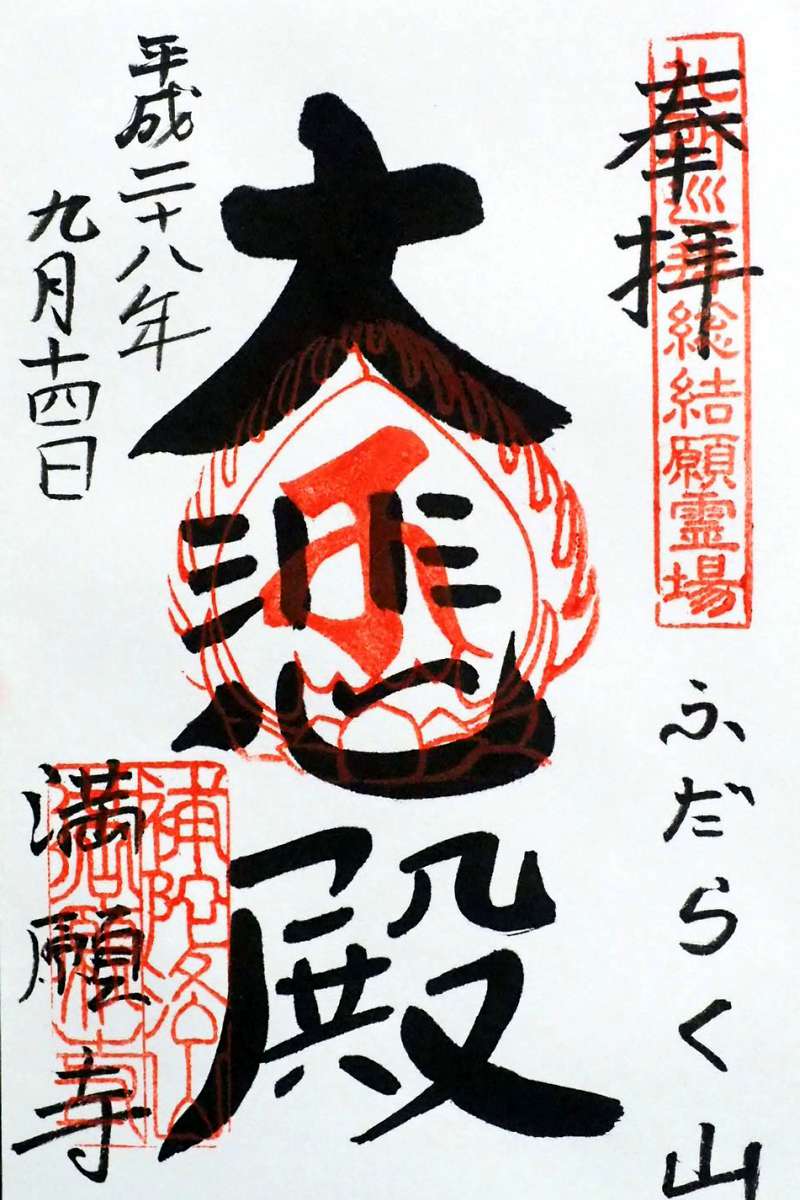 奉拝
札所巡拝総結願霊場
ふだらく山
大悲殿
平成二十八年
九月十四日
満願寺
補陀洛山
満願寺